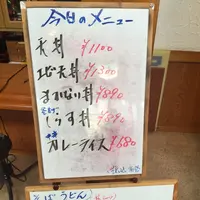 今日のメニュー
天丼 ¥1100
上天丼 ¥1300
まかない丼 ¥890
しらす丼 ¥890
カレーライス ¥680
そば うどん